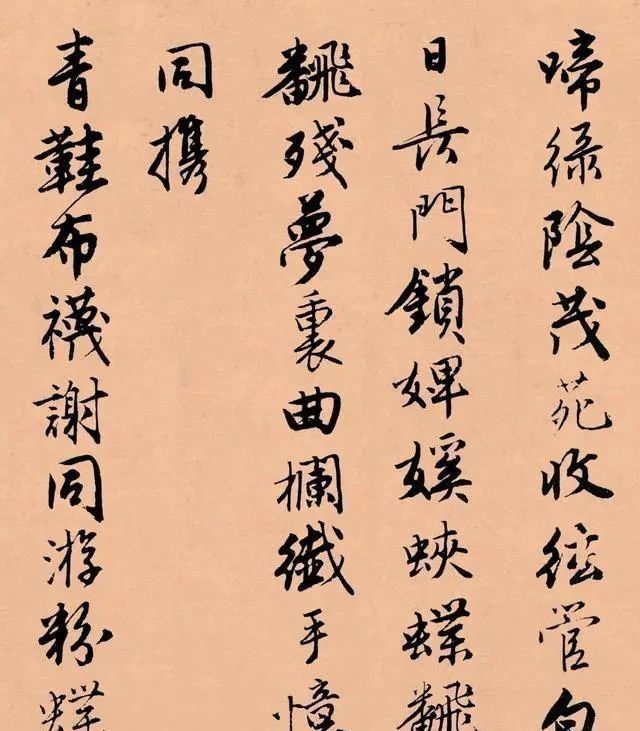 啼綠陰茂苑收絃管白
日長門鎖婢㜎蛺蝶飜
飜殘夢裏曲欄纖手憶
同攜
青鞋布襪謝同游粉蝶